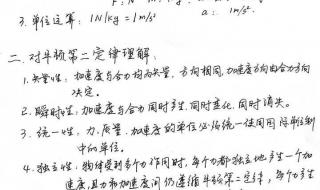 3. 单位运算：1N/kg = 1m/s²
a: 1m/s²
二、对牛顿第二定律理解：
1. 矢量性：加速度与合力均为矢量，方向相同，加速度方向由合力方向
决定。
2. 瞬时性：加速度与合力同时产生、同时变化、同时消失。
3. 统一性：力、质量、加速度的单位必须统一使用国际单位制
中的单位。
4. 独立性：物体受到多个力作用时，每个力都独立地产生一个加
速度，且力和加速度间仍遵循牛顿第二定律，每个力产生